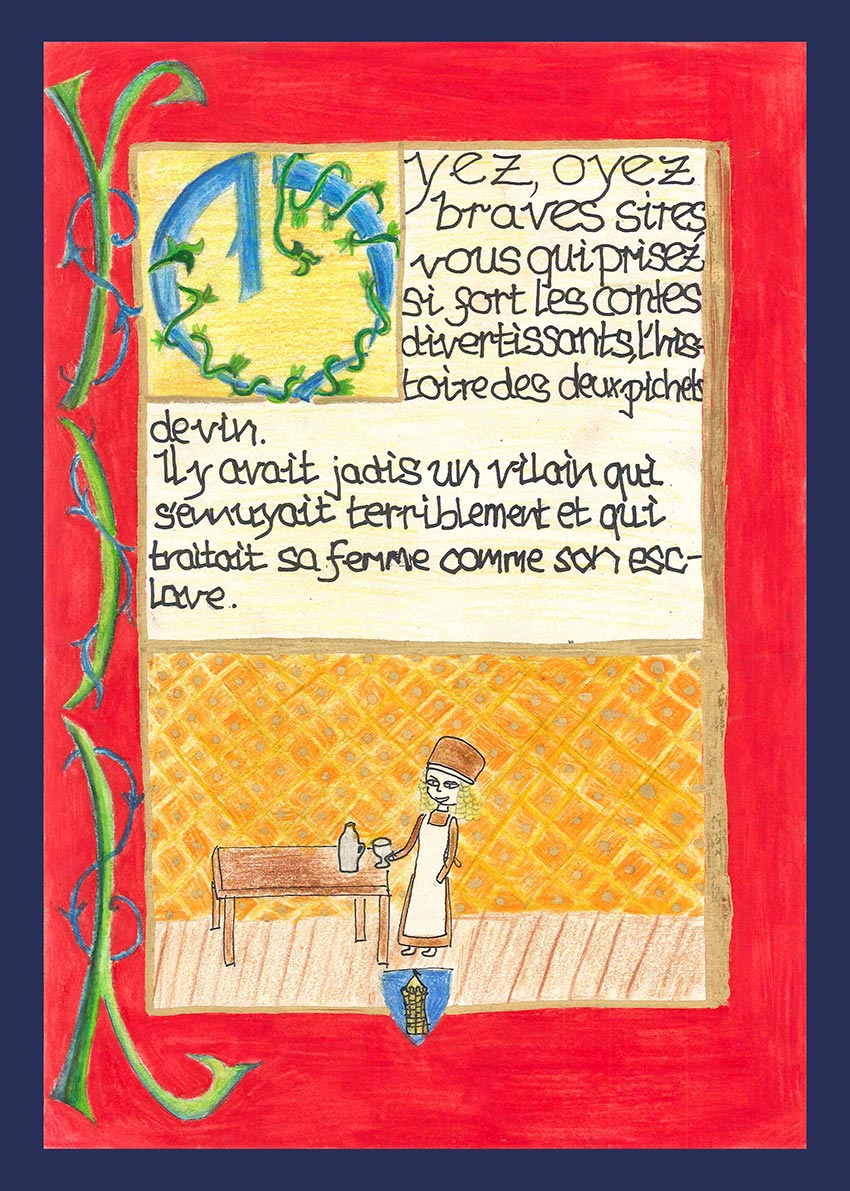 Oyez, oyez
braves sires,
vous qui prisez
si fort les contes
divertissants, l'his-
toire des deux pichets
de vin.
Il y avait jadis un vilain qui
s'ennuyait terriblement et qui
traitait sa femme comme son esc-
lave.